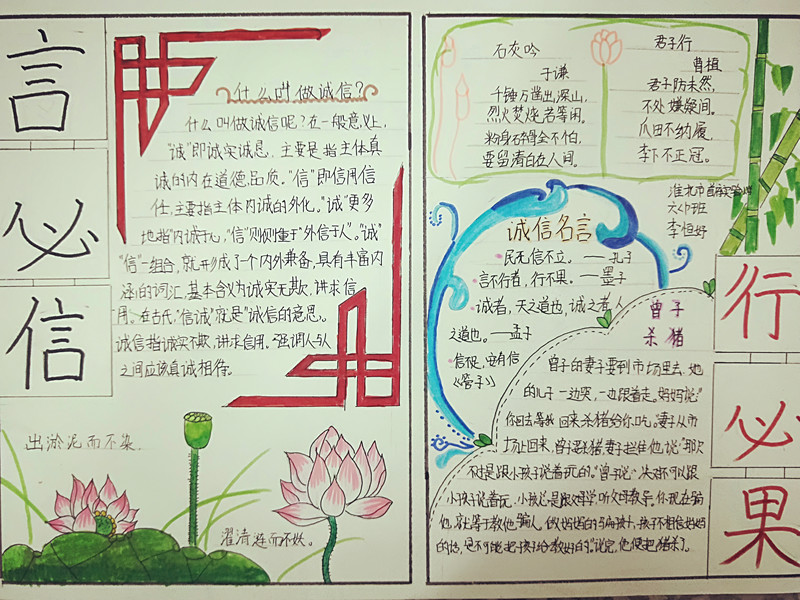 言
必
信
什么叫做诚信?
什么叫做诚信呢?在一般意义上,
"诚"即诚实诚恳,主要是指主体真
诚的内在道德品质。"信"即信用信
任,主要指主体内诚的外化。"诚"更多
地指"内诚于心","信"则侧重于"外信于人"。"诚"
"信"一组合,就形成了个内外兼备,具有丰富内
涵的词汇,基本含义为诚实无欺,讲求信
用。在古氏,"信诚"就是"诚信的意思。
诚信指诚实不欺,讲求信用。强调人与人
之间应该真诚相待。
出淤泥而不染.
濯清涟而不妖。
石灰吟
于谦
千锤万凿出深山,
烈火焚烧若等闲。
粉身碎骨全不怕,
要留清白在人间。
君子行
曹植
君子防未然,
不处嫌疑间。
瓜田不纳履,
李下不正冠。
淮北市
六(1)班
李恒好
诚信名言
民无信不立。——孔子
言不行者,行不果。——墨子
诚者,天之道也,诚之者人
之道也。——孟子
信足,安有信
《管子》
曾子
杀猪
曾子的妻子要到市场里去,她
的儿子一边哭,一边跟着走。妈妈说"
你回去等我回来杀猪给你吃。妻子从市
场上回来,曾子要杀猪,妻子拦住他,说"那次
不过是跟小孩子说着玩的。"曾子说"决不可以跟
小孩子说着玩.小孩总是跟父母学,听父母教导。你现在骗
他,就等于教他骗人,做妈妈的骗孩子,孩子不相信妈妈
的话,是不可能把孩子给教好的。"说完,他便把猪杀了。
行
必
果